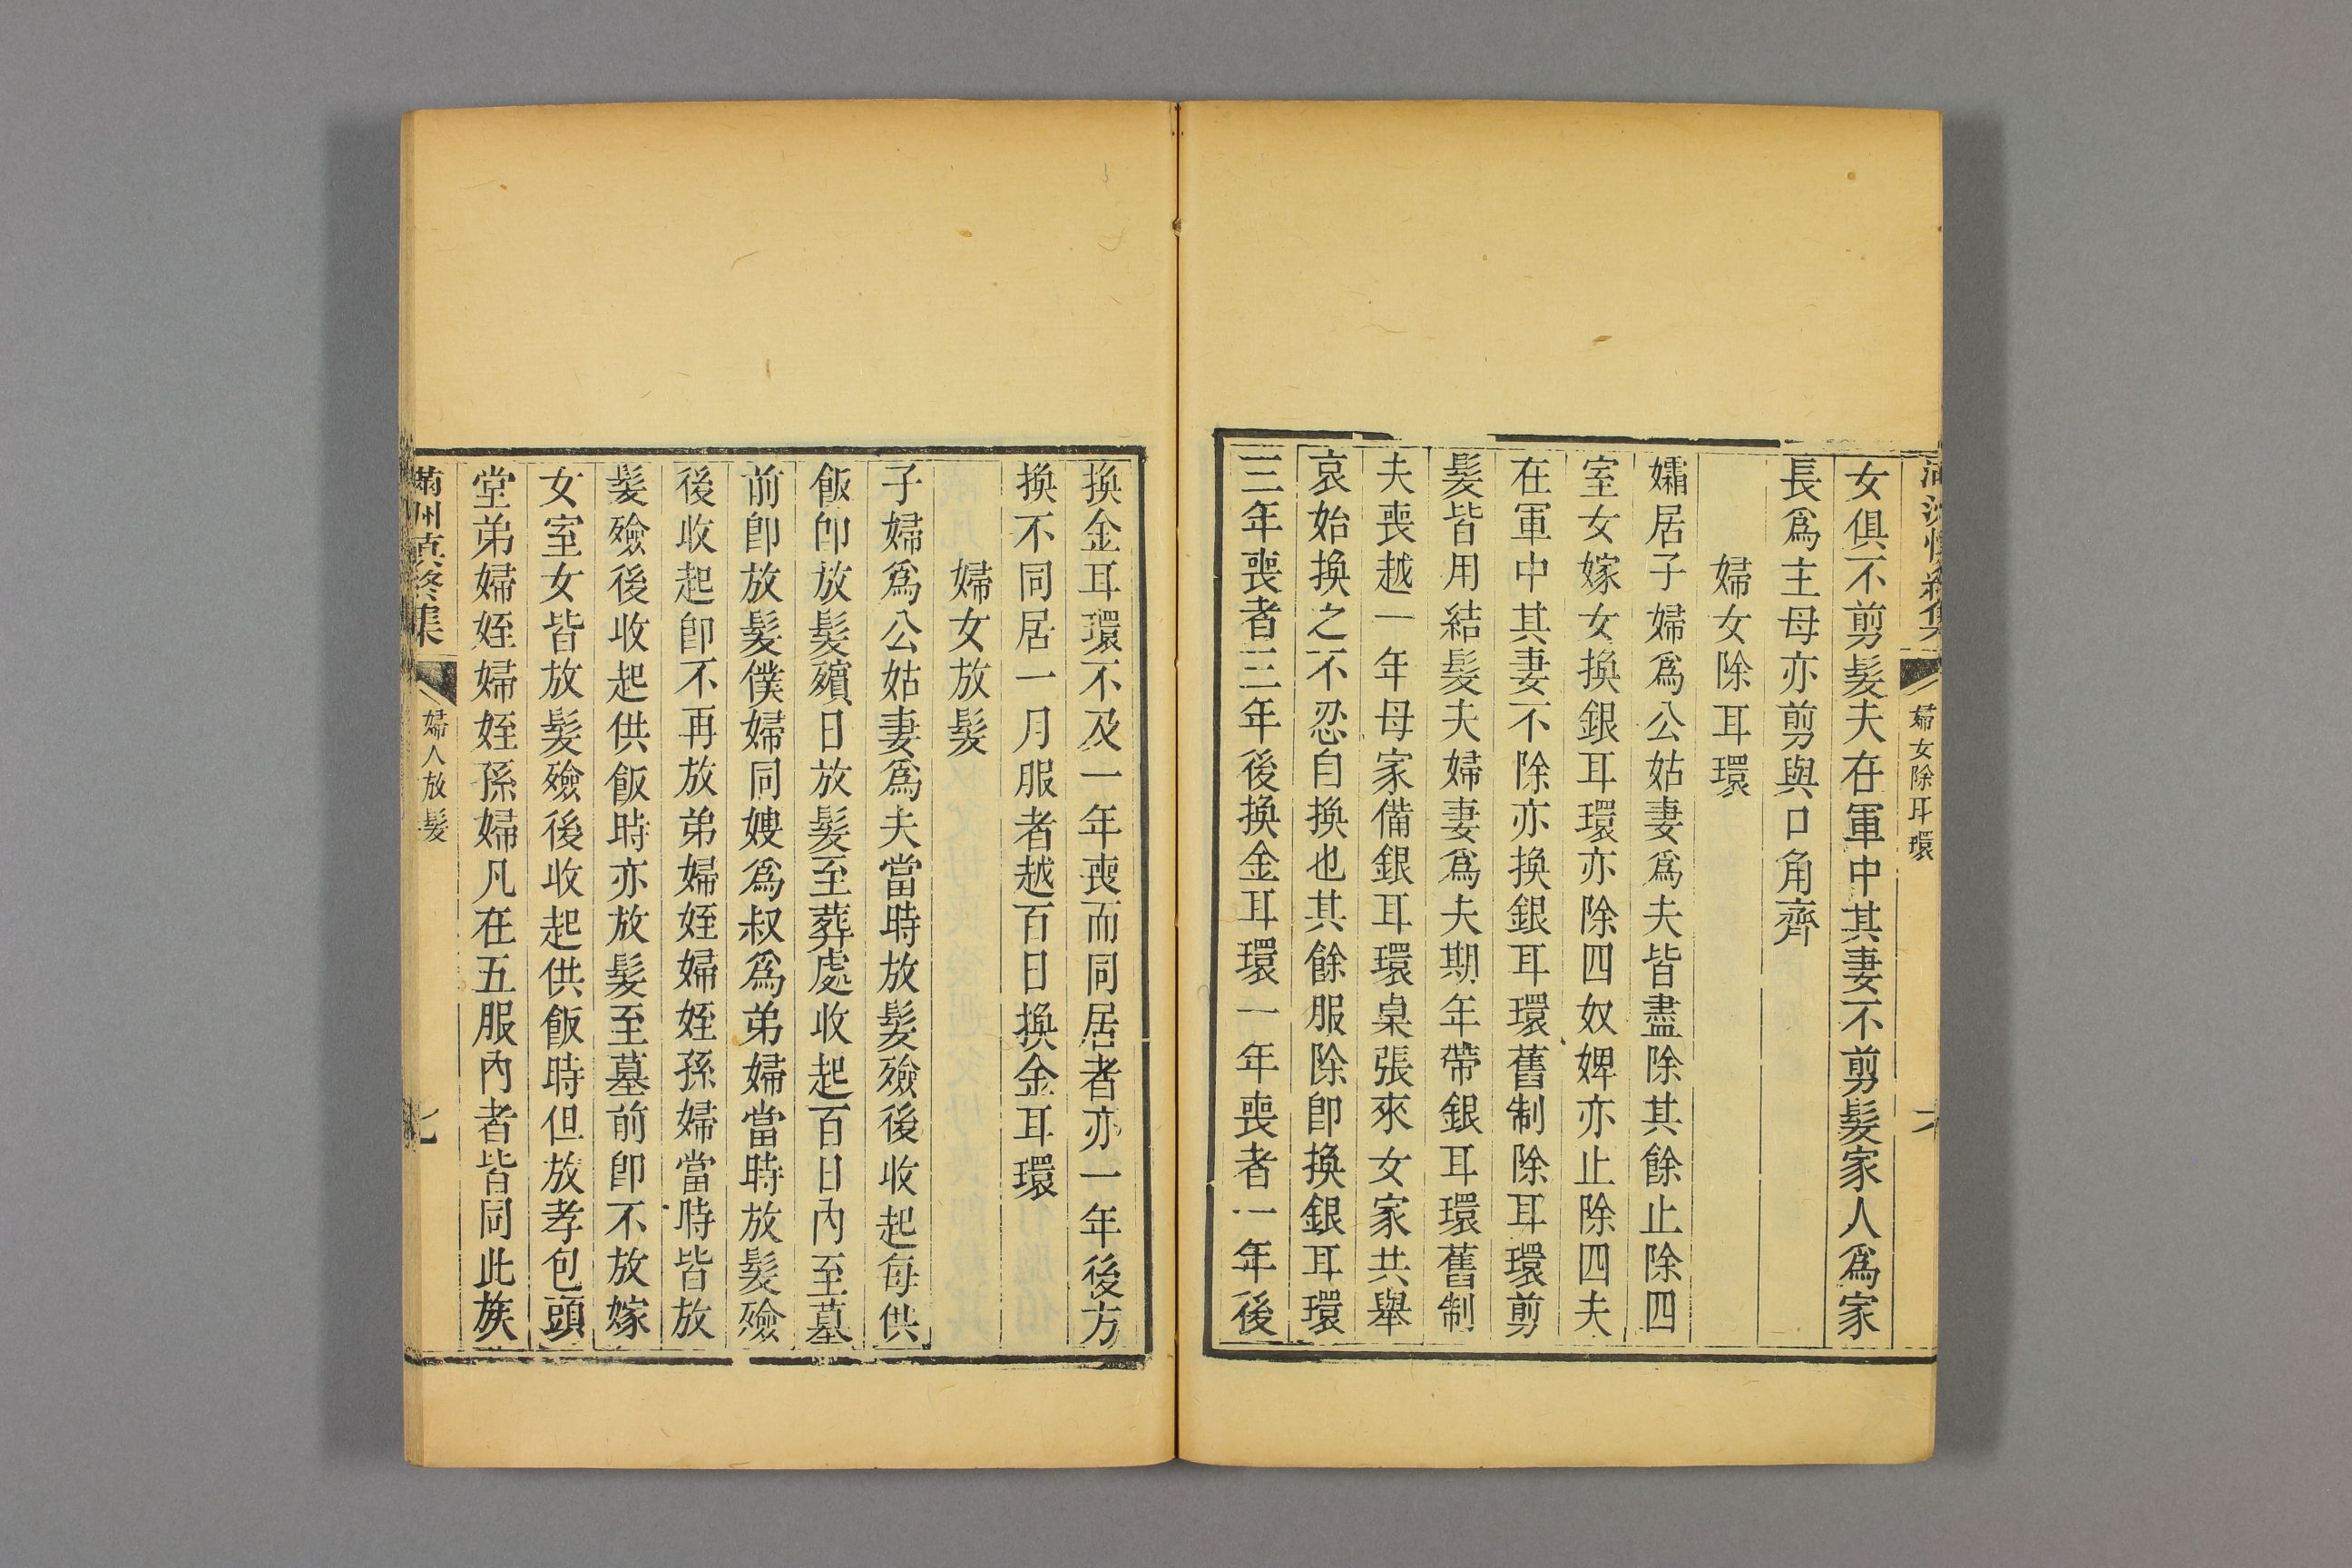 婦女除耳環
女俱不剪髮夫在軍中其妻不剪髮家人爲家
長爲主母亦剪與口角齊
婦女除耳環
孀居子婦爲公姑妻爲夫皆盡除其餘止除四
室女嫁女換銀耳環亦除四奴婢亦止除四夫
在軍中其妻不除亦換銀耳環舊制除耳環剪
髮皆用結髮夫婦妻爲夫期年帶銀耳環舊制
夫喪越一年母家備銀耳環桌張來女家共舉
哀始換之不忍自換也其餘服除卽換銀耳環
三年喪者三年後換金耳環一年喪者一年後
換金耳環不及一年喪而同居者亦一年後方
換不同居一月服者越百日換金耳環
婦女放髮
子婦爲公姑妻爲夫當時放髮殮後收起每供
飯卽放髮殯日放髮至葬處收起百日內至墓
前卽放髮僕婦同嫂爲叔爲弟婦當時放髮殮
後收起卽不再放弟婦姪婦姪孫婦當時皆放
髮殮後收起供飯時亦放髮至墓前卽不放嫁
女室女皆放髮殮後收起供飯時但放孝包頭
堂弟婦姪婦姪孫婦凡在五服內者皆同此族
滿州慎終集
婦人放髮
七